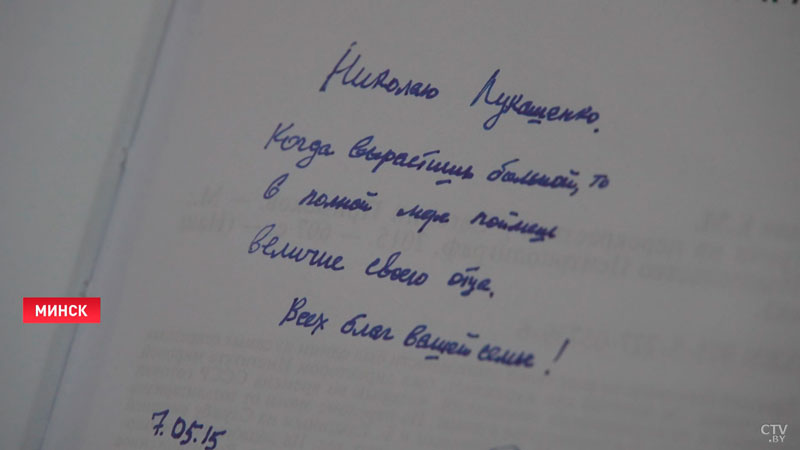 Николаю Лукашенко.
Когда вырастишь большой, то
в полной мере поймешь
величие своего отца.
Всех благ вашей семье!
7.05.15
МИНСК
CTV
.BY